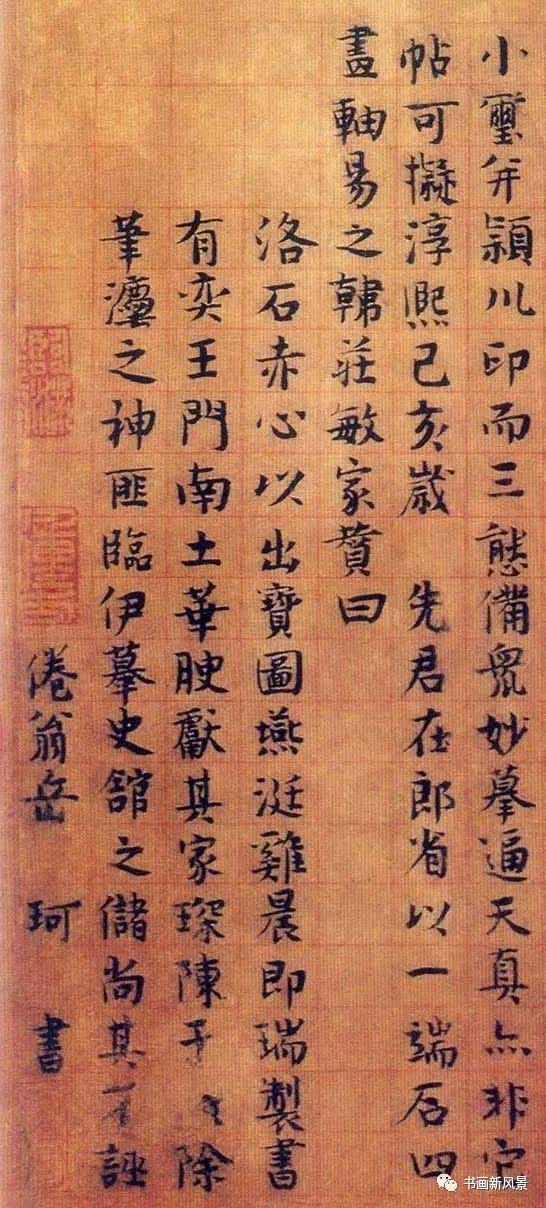 小璽并潁川印而三態備衆妙摹逼天真亦非它
帖可擬淳熙己亥歲 先君在郎省以一端石四
畫軸易之韓莊敏家贊曰
洛石赤心以出寶圖燕涎雞晨即瑞製書
有奕王門南土華腴獻其家琛陳于 除
筆灋之神匪臨伊摹史館之儲尚其不誣
倦翁岳 珂 書
书画新风景